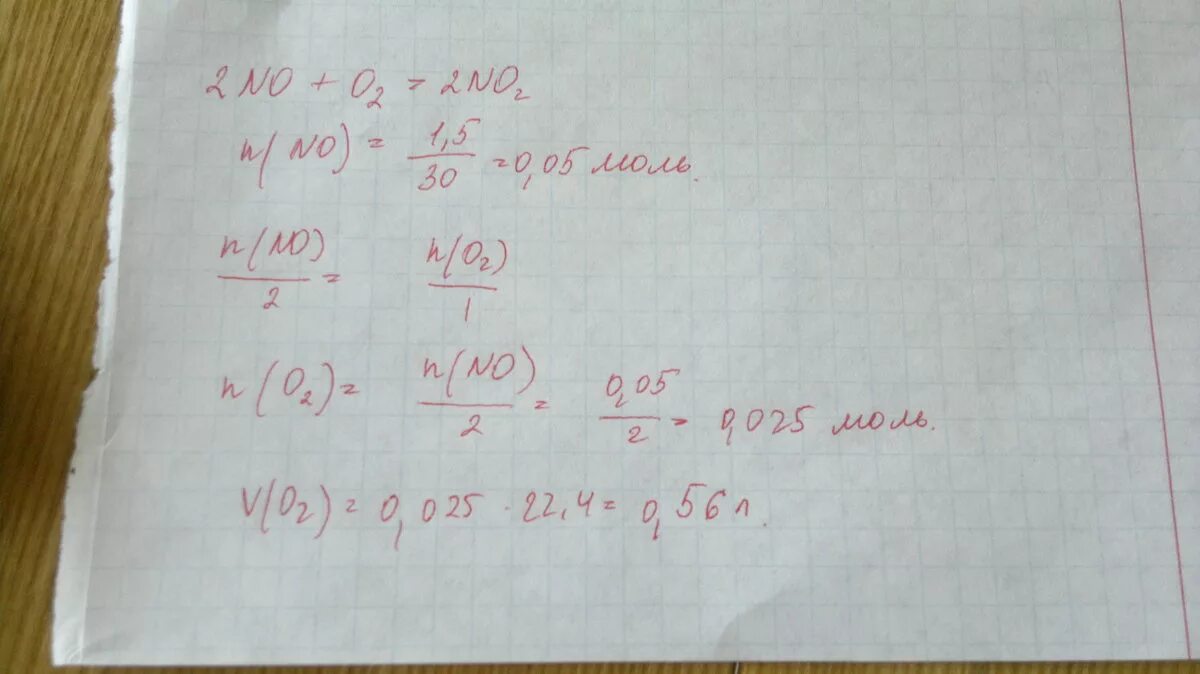 2NO + O₂ = 2NO₂
n(NO) = 1,5/30 = 0,05 моль.
n(NO)/2 = n(O₂)/1
n(O₂) = n(NO)/2 = 0,05/2 = 0,025 моль.
V(O₂) = 0,025 · 22,4 = 0,56 л.